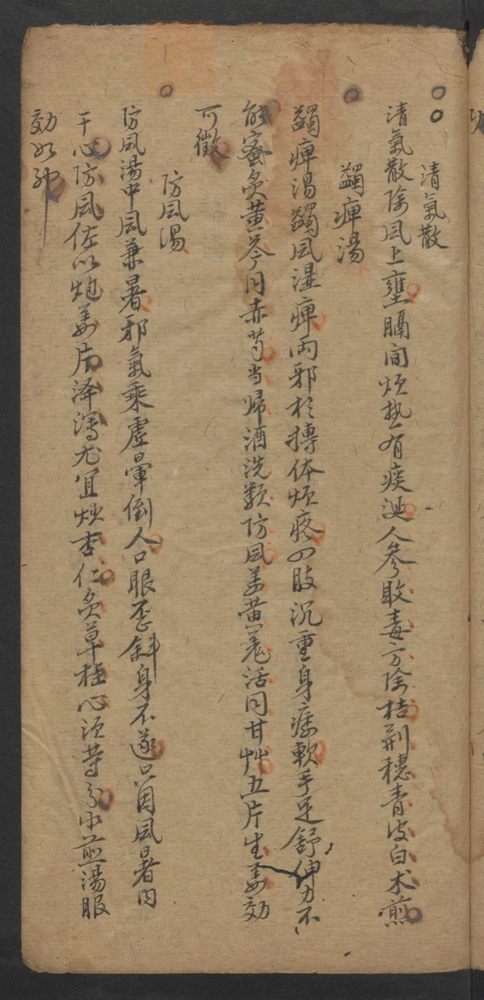 清氣散
清氣散除風上壅膈間煩热有痰涎人參敗毒方除桔荆穗青皮白术煎
蠲痺湯
蠲痺湯蠲風湿痺兩邪相摶体煩疼四肢沉重身痿軟手足舒伸力不
能蜜炙黄芪同赤芍当帰酒洗款防風姜黄羌活同甘艸五片生姜効
可徵
防風湯
防風湯中風兼暑邪氣乘虚暈倒人口眼歪斜身不遂只因風暑内
干心防風佐以炮姜片泽瀉尤宜炒杏仁炙草桂心須等分水煎湯服
効如神